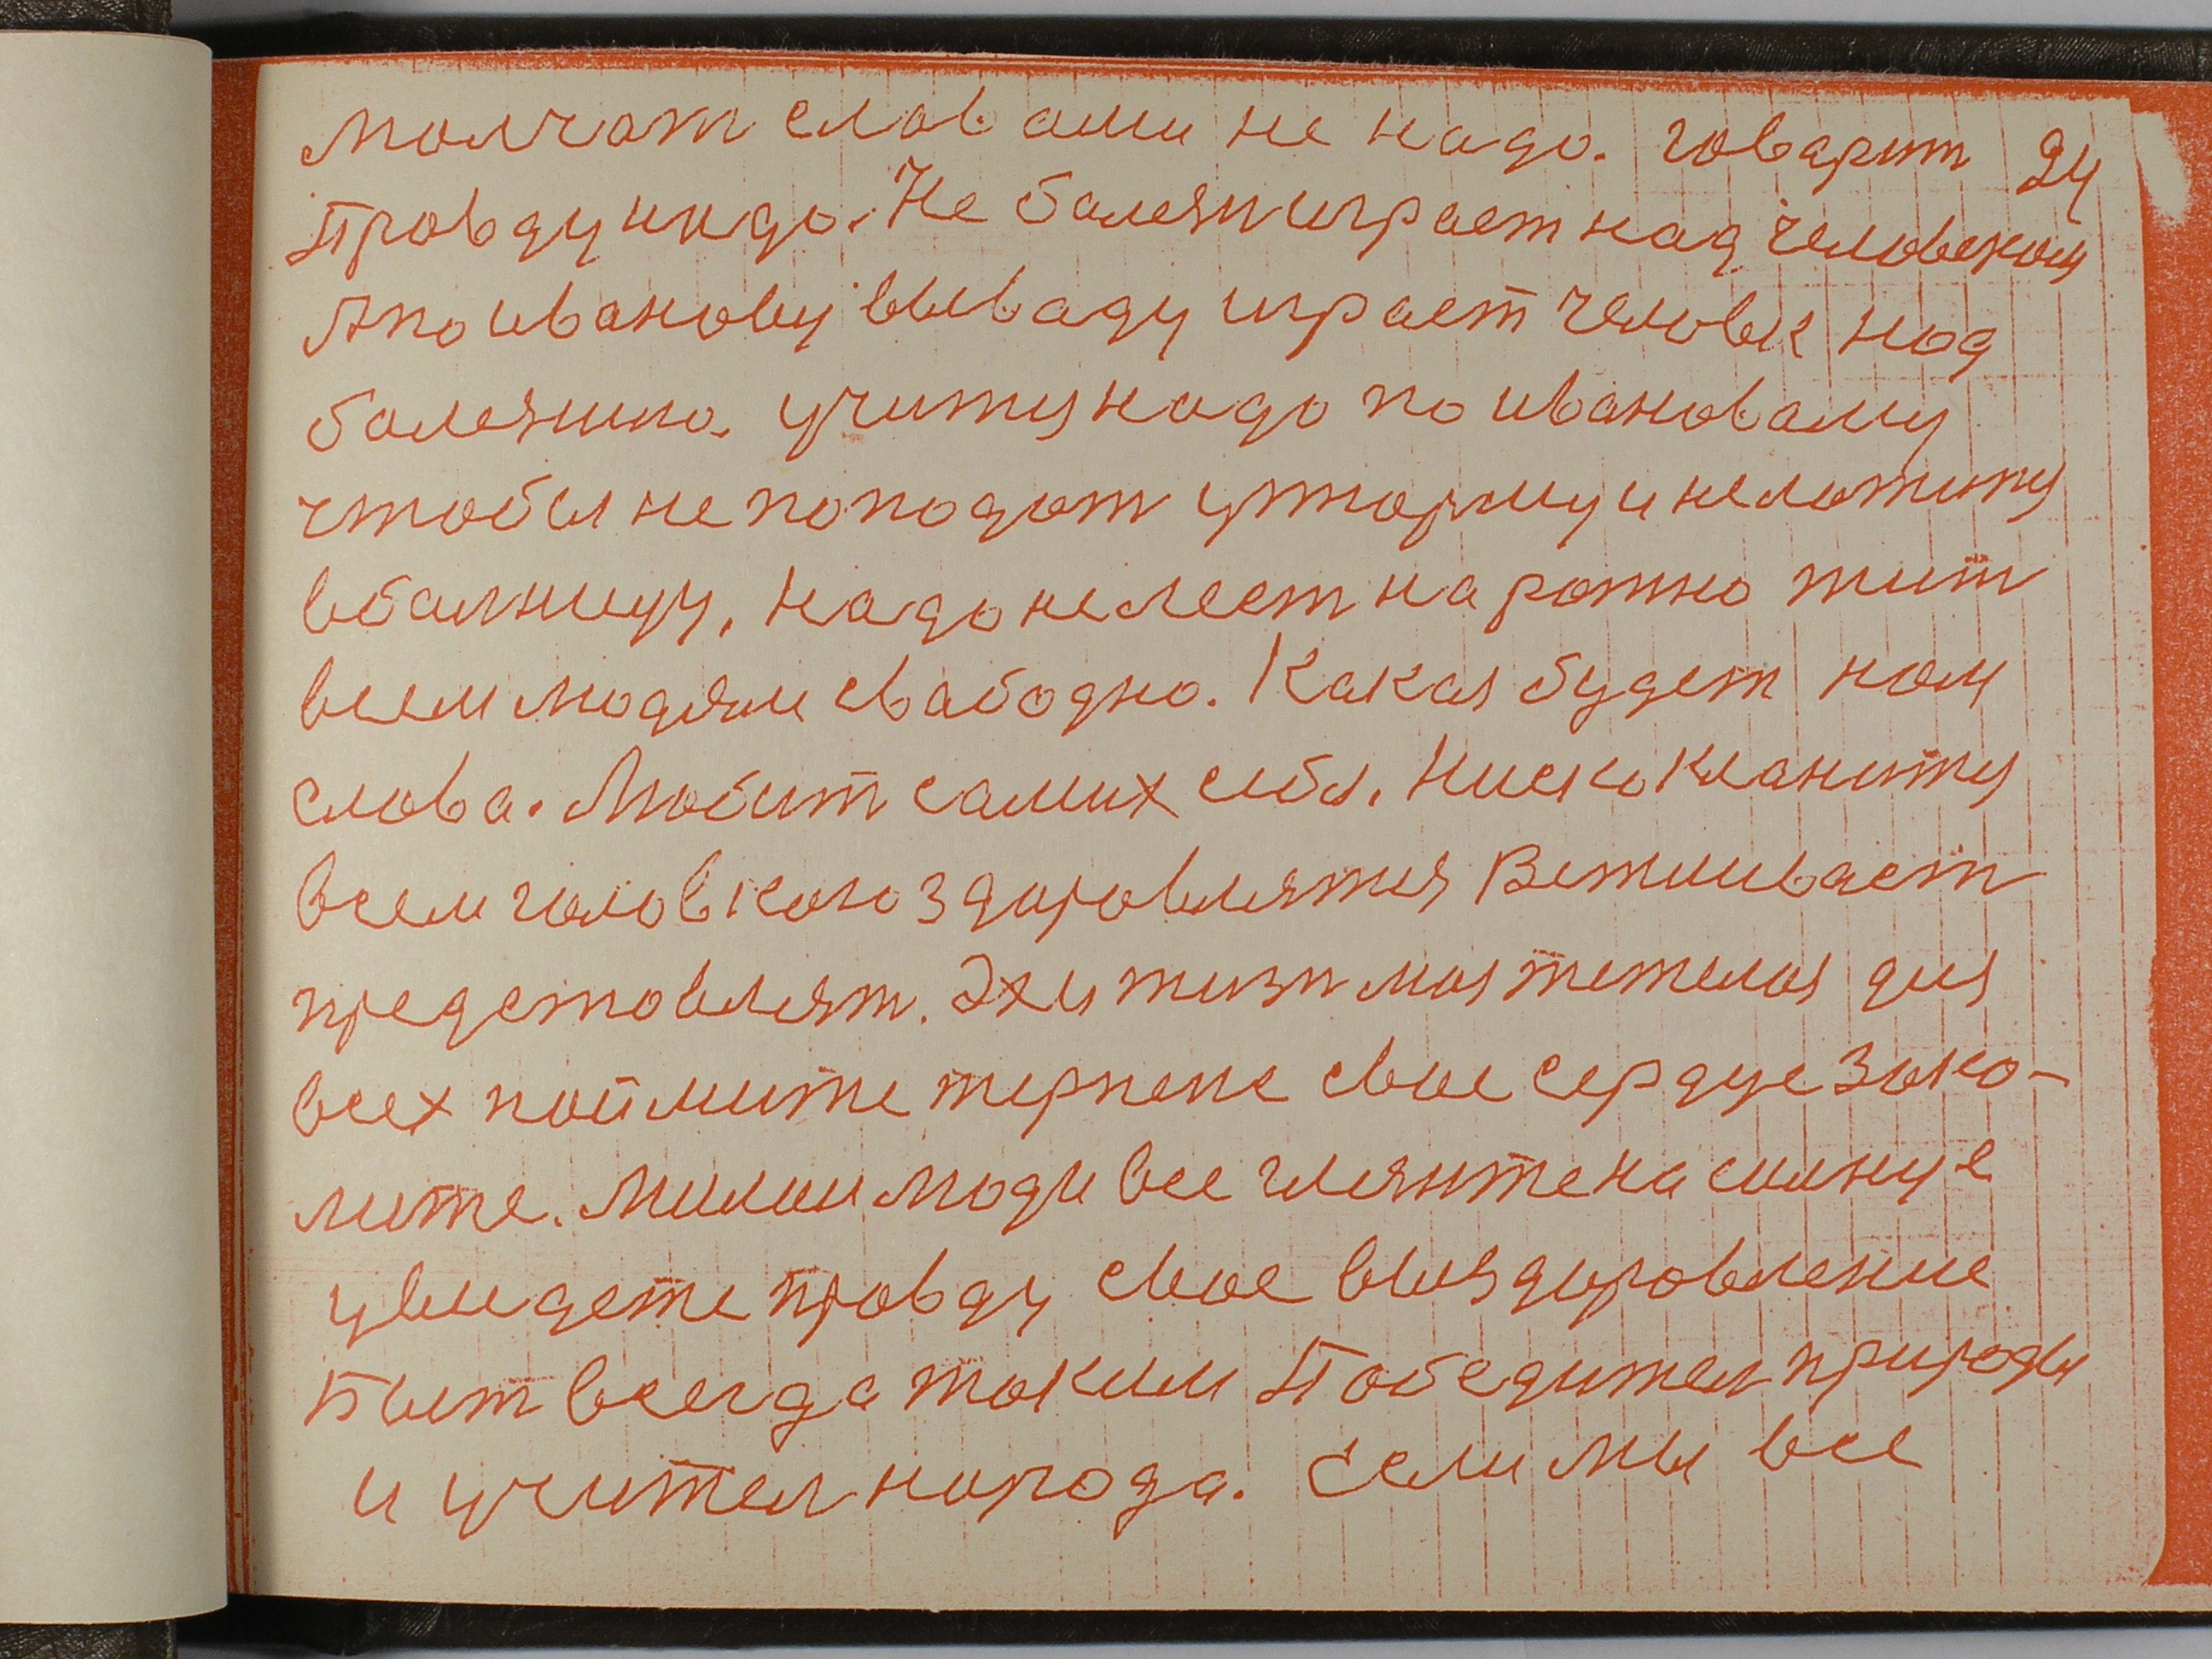 молчат словами не надо. говарит 24
Правду надо. Не болезн играет над человеком
А по ивановы вываду играет человек над
болезнию. учитця надо по ивановаму
чтобы не пападат утюрму и неложитця
вбалницу, надо нелест нарожно жит
всем людям свабодно. Какая будет нам
слова. Любит самих себя. Ниско кланитця
всем головкою здаровлятця Ветливаст
представлят. Эх и жизн моя тежелая для
всех поймите терпение свое сердце Зака-
лите. Милаи люди все глянте на солнце
увидете правду свое выздаровление
Быт всегда таким Победител природы
и учител народа. Если мы все